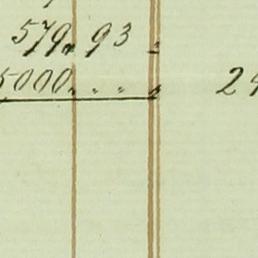 579. 93 "
5000. " " "  24